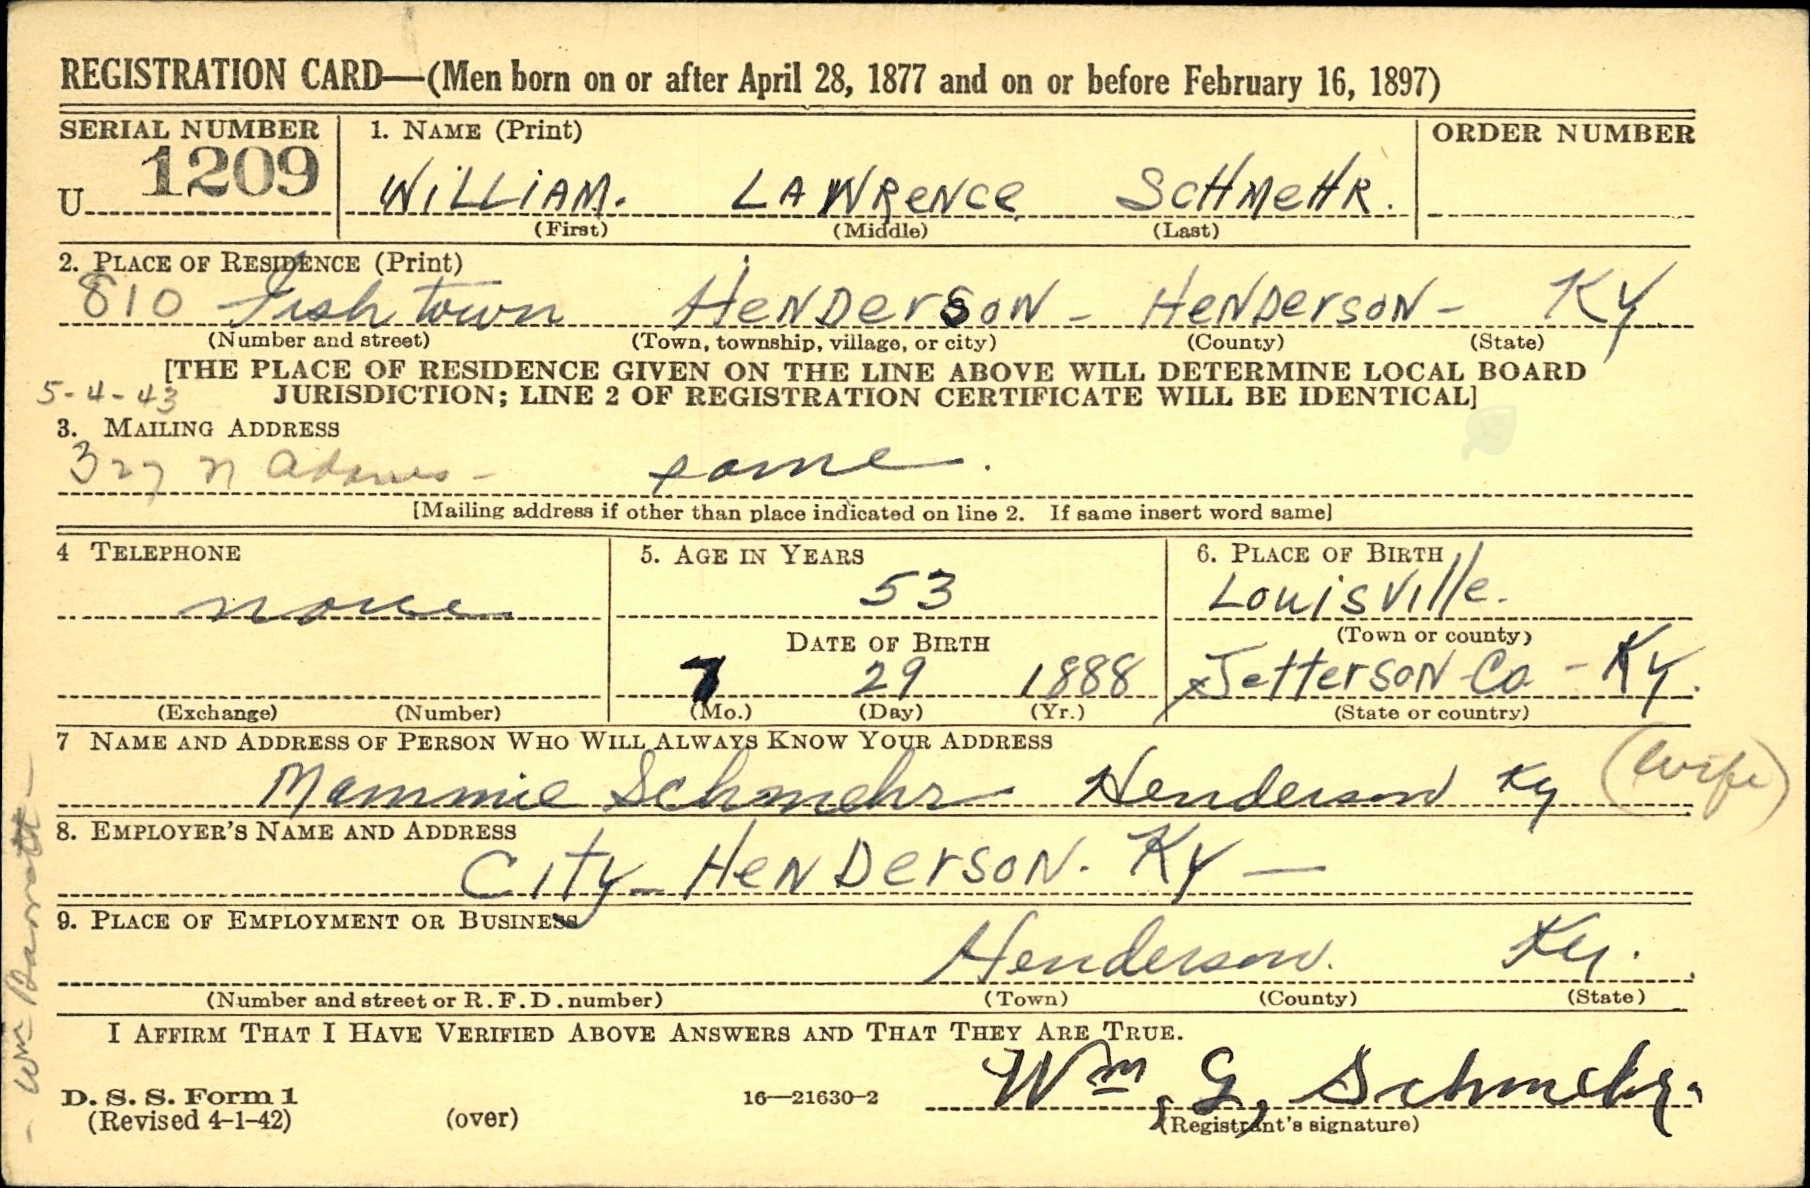 REGISTRATION CARD—(Men born on or after April 28, 1877 and on or before February 16, 1897)
SERIAL NUMBER
1. NAME (Print)
ORDER NUMBER
U 1209
WiLLiAM. LAWRENCe SCHMeHR.
(First) (Middle) (Last)
2. PLACE OF RESIDENCE (Print)
810 Fish town HeNDerSoN - HeNDersoN - KY
(Number and street) (Town, township, village, or city) (County) (State)
[THE PLACE OF RESIDENCE GIVEN ON THE LINE ABOVE WILL DETERMINE LOCAL BOARD
5-4-43
JURISDICTION; LINE 2 OF REGISTRATION CERTIFICATE WILL BE IDENTICAL]
3. MAILING ADDRESS
327 N Adams - same.
[Mailing address if other than place indicated on line 2. If same insert word same]
4 TELEPHONE
5. AGE IN YEARS
6. PLACE OF BIRTH
none
53
Louisville.
DATE OF BIRTH
(Town or county)
7 29 1888
Jefferson Co - Ky.
(Exchange) (Number)
(Mo.) (Day) (Yr.)
(State or country)
7 NAME AND ADDRESS OF PERSON WHO WILL ALWAYS KNOW YOUR ADDRESS
Mammie Schmehr Henderson Ky (Wife)
8. EMPLOYER'S NAME AND ADDRESS
CITY - HeNDersoN. KY —
9. PLACE OF EMPLOYMENT OR BUSINESS
Henderson. Ky.
(Number and street or R. F. D. number) (Town) (County) (State)
I AFFIRM THAT I HAVE VERIFIED ABOVE ANSWERS AND THAT THEY ARE TRUE.
D. S. S. Form 1
(Revised 4-1-42)
(over)
16—21630-2
Wm, G, Schmehr.
(Registrant's signature)
- Wm